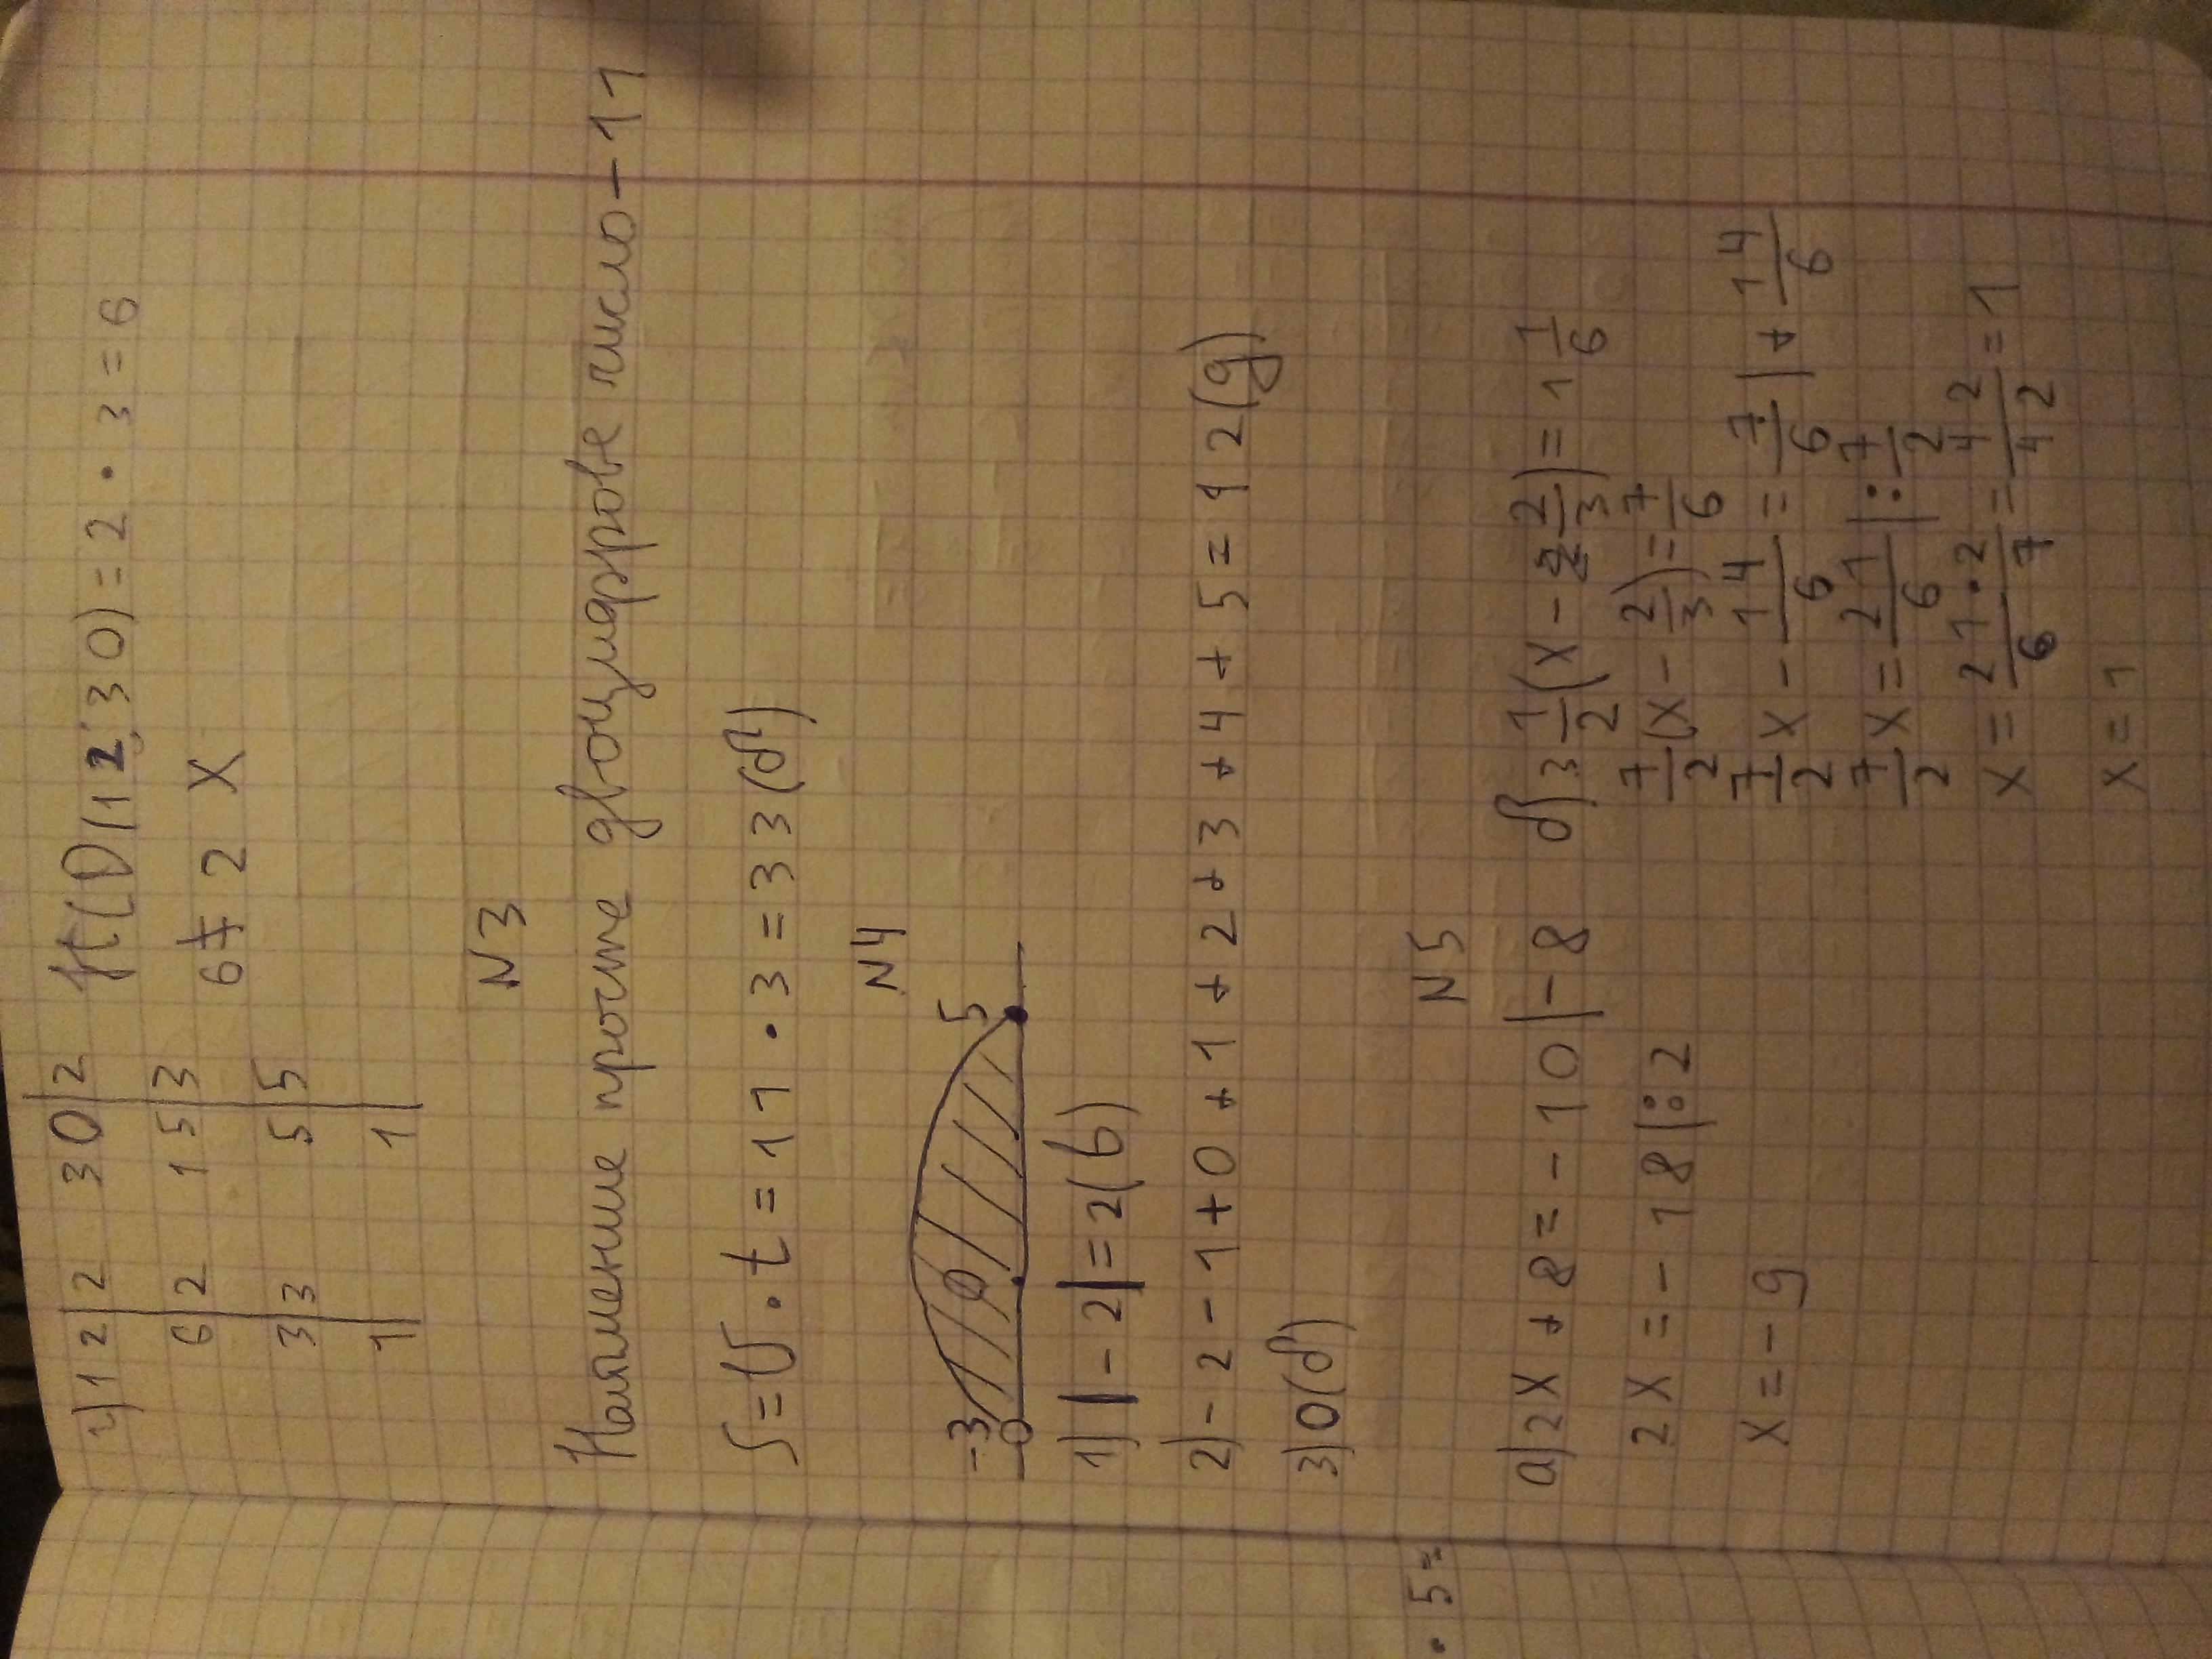 г) 12|2 30|2 НСД(12;30)=2·3=6
6|2 15|3 6≠2 X
3|3 5|5
1| 1|
N3
Найменше просте двоцифрове число - 11
S=v·t=11·3=33(б)
N4
-3 0 5
1) |-2|=2(в)
2) -2-1+0+1+2+3+4+5=12(д)
3) 0(б)
N5
а) 2x+8=-10|-8
2x=-18|:2
x=-9
б) 3 1/2(x-2/3)=1 1/6
7/2(x-2/3)=7/6
7/2x-14/6=7/6|+14/6
7/2x=21/6|:7/2
x=21·2/6 7=42/42=1
x=1
·5=